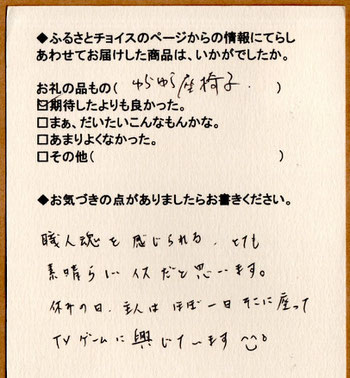 ◆ふるさとチョイスのページからの情報にてらし
あわせてお届けした商品は、いかがでしたか。
お礼の品もの( ゆらゆら座椅子. )
☑期待したよりも良かった。
□まぁ、だいたいこんなもんかな。
□あまりよくなかった。
□その他( )
◆お気づきの点がありましたらお書きください。
職人魂を感じられる、とても
素晴らしいイスだと思います。
休みの日、主人はほぼ一日そこに座って
TVゲームに興じています^^。